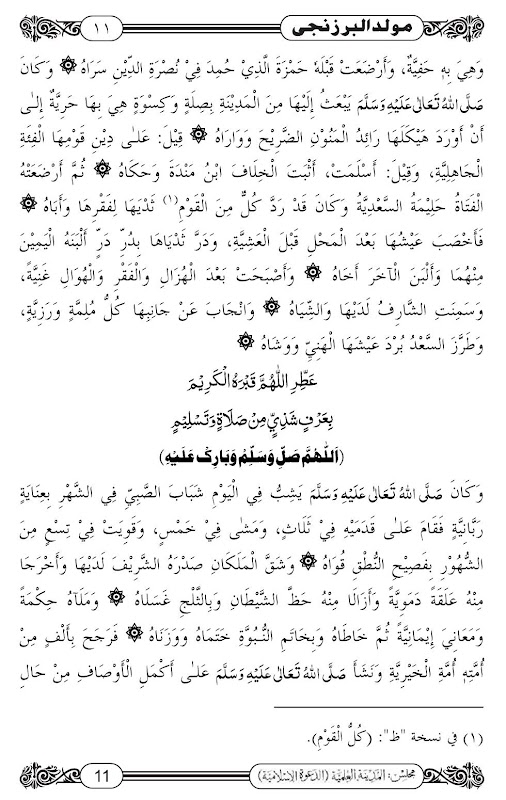 مولد البرزنجي
١١
وَهِيَ بِهِ حَفِيَّةٌ، وَأَرْضَعَتْ قَبْلَهُ حَمْزَةَ الَّذِيْ حُمِدَ فِيْ نُصْرَةِ الدِّيْنِ سَرَاهُ ۞ وَكَانَ
صَلَّى اللهُ تَعَالٰى عَلَيْهِ وَسَلَّمَ يَبْعَثُ إِلَيْهَا مِنَ الْمَدِيْنَةِ بِصِلَةٍ وَكِسْوَةٍ هِيَ بِهَا حَرِيَّةٌ إِلٰى
أَنْ أَوْرَدَ هَيْكَلَهَا رَائِدُ الْمَنُوْنِ الضَّرِيْحَ وَوَارَاهُ ۞ قِيْلَ: عَلٰى دِيْنِ قَوْمِهَا الْفِئَةِ
الْجَاهِلِيَّةِ، وَقِيْلَ: أَسْلَمَتْ، أَثْبَتَ الْخِلَافَ ابْنُ مَنْدَةَ وَحَكَاهُ ۞ ثُمَّ أَرْضَعَتْهُ
الْفَتَاةُ حَلِيْمَةُ السَّعْدِيَّةُ وَكَانَ قَدْ رَدَّ كُلٌّ مِنَ الْقَوْمِ(١) ثَدْيَهَا لِفَقْرِهَا وَأَبَاهُ ۞
فَأَخْصَبَ عَيْشُهَا بَعْدَ الْمَحْلِ قَبْلَ الْعَشِيَّةِ، وَدَرَّ ثَدْيَاهَا بِدُرِّ دَرٍّ أَلْبَنَهُ الْيَمِيْنَ
مِنْهُمَا وَأَلْبَنَ الْآخَرَ أَخَاهُ ۞ وَأَصْبَحَتْ بَعْدَ الْهُزَالِ وَالْفَقْرِ وَالْهُوَالِ غَنِيَّةً،
وَسَمِنَتِ الشَّارِفُ لَدَيْهَا وَالشِّيَاهُ ۞ وَانْجَابَ عَنْ جَانِبِهَا كُلُّ مُلِمَّةٍ وَرَزِيَّةٍ،
وَطَرَّزَ السَّعْدُ بُرْدَ عَيْشِهَا الْهَنِيِّ وَوَشَاهُ ۞
عَطِّرِ اللّٰهُمَّ قَبْرَهُ الْكَرِيْمَ
بِعَرْفٍ شَذِيٍّ مِنْ صَلَاةٍ وَتَسْلِيْمٍ
(اَللّٰهُمَّ صَلِّ وَسَلِّمْ وَبَارِكْ عَلَيْهِ)
وَكَانَ صَلَّى اللهُ تَعَالٰى عَلَيْهِ وَسَلَّمَ يَشِبُّ فِي الْيَوْمِ شَبَابَ الصَّبِيِّ فِي الشَّهْرِ بِعِنَايَةٍ
رَبَّانِيَّةٍ فَقَامَ عَلٰى قَدَمَيْهِ فِيْ ثَلَاثٍ، وَمَشٰى فِيْ خَمْسٍ، وَقَوِيَتْ فِيْ تِسْعٍ مِنَ
الشُّهُوْرِ بِفَصِيْحِ النُّطْقِ قُوَاهُ ۞ وَشَقَّ الْمَلَكَانِ صَدْرَهُ الشَّرِيْفَ لَدَيْهَا وَأَخْرَجَا
مِنْهُ عَلَقَةً دَمَوِيَّةً وَأَزَالَا مِنْهُ حَظَّ الشَّيْطَانِ وَبِالثَّلْجِ غَسَلَاهُ ۞ وَمَلَآهُ حِكْمَةً
وَمَعَانِيَ إِيْمَانِيَّةً ثُمَّ خَاطَاهُ وَبِخَاتِمِ النُّبُوَّةِ خَتَمَاهُ وَوَزَنَاهُ ۞ فَرَجَحَ بِأَلْفٍ مِنْ
أُمَّتِهِ أُمَّةِ الْخَيْرِيَّةِ وَنَشَأَ صَلَّى اللهُ تَعَالٰى عَلَيْهِ وَسَلَّمَ عَلٰى أَكْمَلِ الْأَوْصَافِ مِنْ حَالِ
(١) في نسخة "ظ": (كُلُّ الْقَوْمِ).
مجلس: المدينة العلمية (الدعوة الإسلامية)
11